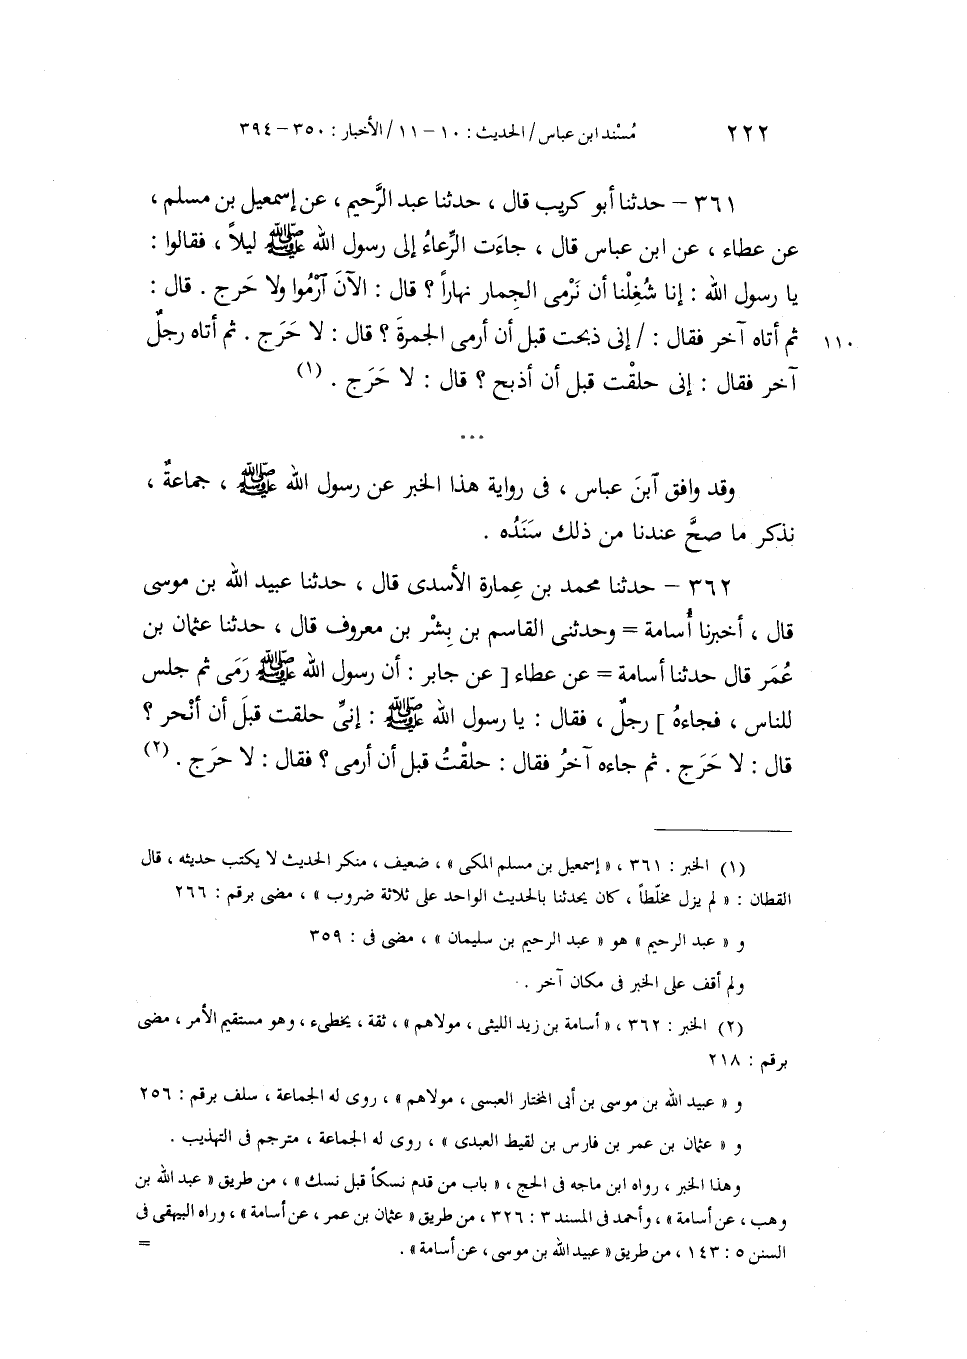 ٢٢٢ مُسْند ابن عباس / الحديث : ١٠ – ١١ / الأخبار : ٣٥٠ – ٣٩٤
٣٦١ – حدثنا أبو كريب قال ، حدثنا عبد الرَّحيم ، عن إسمعيل بن مسلم ،
عن عطاء ، عن ابن عباس قال ، جاءَت الرِّعاءُ إلى رسول الله ﷺ ليلاً ، فقالوا :
يا رسول الله : إنا شُغِلْنا أن نَرْمى الجِمار نهاراً ؟ قال : الآنَ آرْمُوا ولا حَرج . قال :
١١٠ ثم أتاه آخر فقال : / إنى ذبحت قبل أن أرمى الجمرةَ ؟ قال : لا حَرَج . ثم أتاه رجلٌ
آخر فقال : إنى حلقْت قبل أن أذبح ؟ قال : لا حَرَج . (١)
...
وقد وافق آبنَ عباس ، فى رواية هذا الخبر عن رسول الله ﷺ ، جماعةٌ ،
نذكر ما صحَّ عندنا من ذلك سَنَدُه .
٣٦٢ – حدثنا محمد بن عِمارة الأسدى قال ، حدثنا عبيد الله بن موسى
قال ، أخبرنا أُسامة = وحدثنى القاسم بن بِشْر بن معروف قال ، حدثنا عثمان بن
عُمَر قال حدثنا أسامة = عن عطاء [ عن جابر : أن رسول الله ﷺ رَمَى ثم جلس
للناس ، فجاءهُ ] رجلٌ ، فقال : يا رسول الله ﷺ : إنىِّ حلقت قبلَ أن أنْحر ؟
قال : لا حَرَج . ثم جاءه آخرُ فقال : حلقْتُ قبل أن أرمى ؟ فقال : لا حرَج . (٢)
(١) الخبر : ٣٦١ ، « إسمعيل بن مسلم المكى » ، ضعيف ، منكر الحديث لا يكتب حديثه ، قال
القطان : « لم يزل مخلّطاً ، كان يحدثنا بالحديث الواحد على ثلاثة ضروب » ، مضى برقم : ٢٦٦
و « عبد الرحيم » هو « عبد الرحيم بن سليمان » ، مضى فى : ٣٥٩
ولم أقف على الخبر فى مكان آخر .
(٢) الخبر : ٣٦٢ ، « أسامة بن زيد الليثى ، مولاهم » ، ثقة ، يخطىء ، وهو مستقيم الأمر ، مضى
برقم : ٢١٨
و « عبيد الله بن موسى بن أبى المختار العبسى ، مولاهم » ، روى له الجماعة ، سلف برقم : ٢٥٦
و « عثمان بن عمر بن فارس بن لقيط العبدى » ، روى له الجماعة ، مترجم فى التهذيب .
وهذا الخبر ، رواه ابن ماجه فى الحج ، « باب من قدم نسكاً قبل نسك » ، من طريق « عبد الله بن
وهب ، عن أسامة » ، وأحمد فى المسند ٣ : ٣٢٦ ، من طريق « عثمان بن عمر ، عن أسامة » ، وراه البيهقى فى
السنن ٥ : ١٤٣ ، من طريق « عبيد الله بن موسى ، عن أسامة » . =